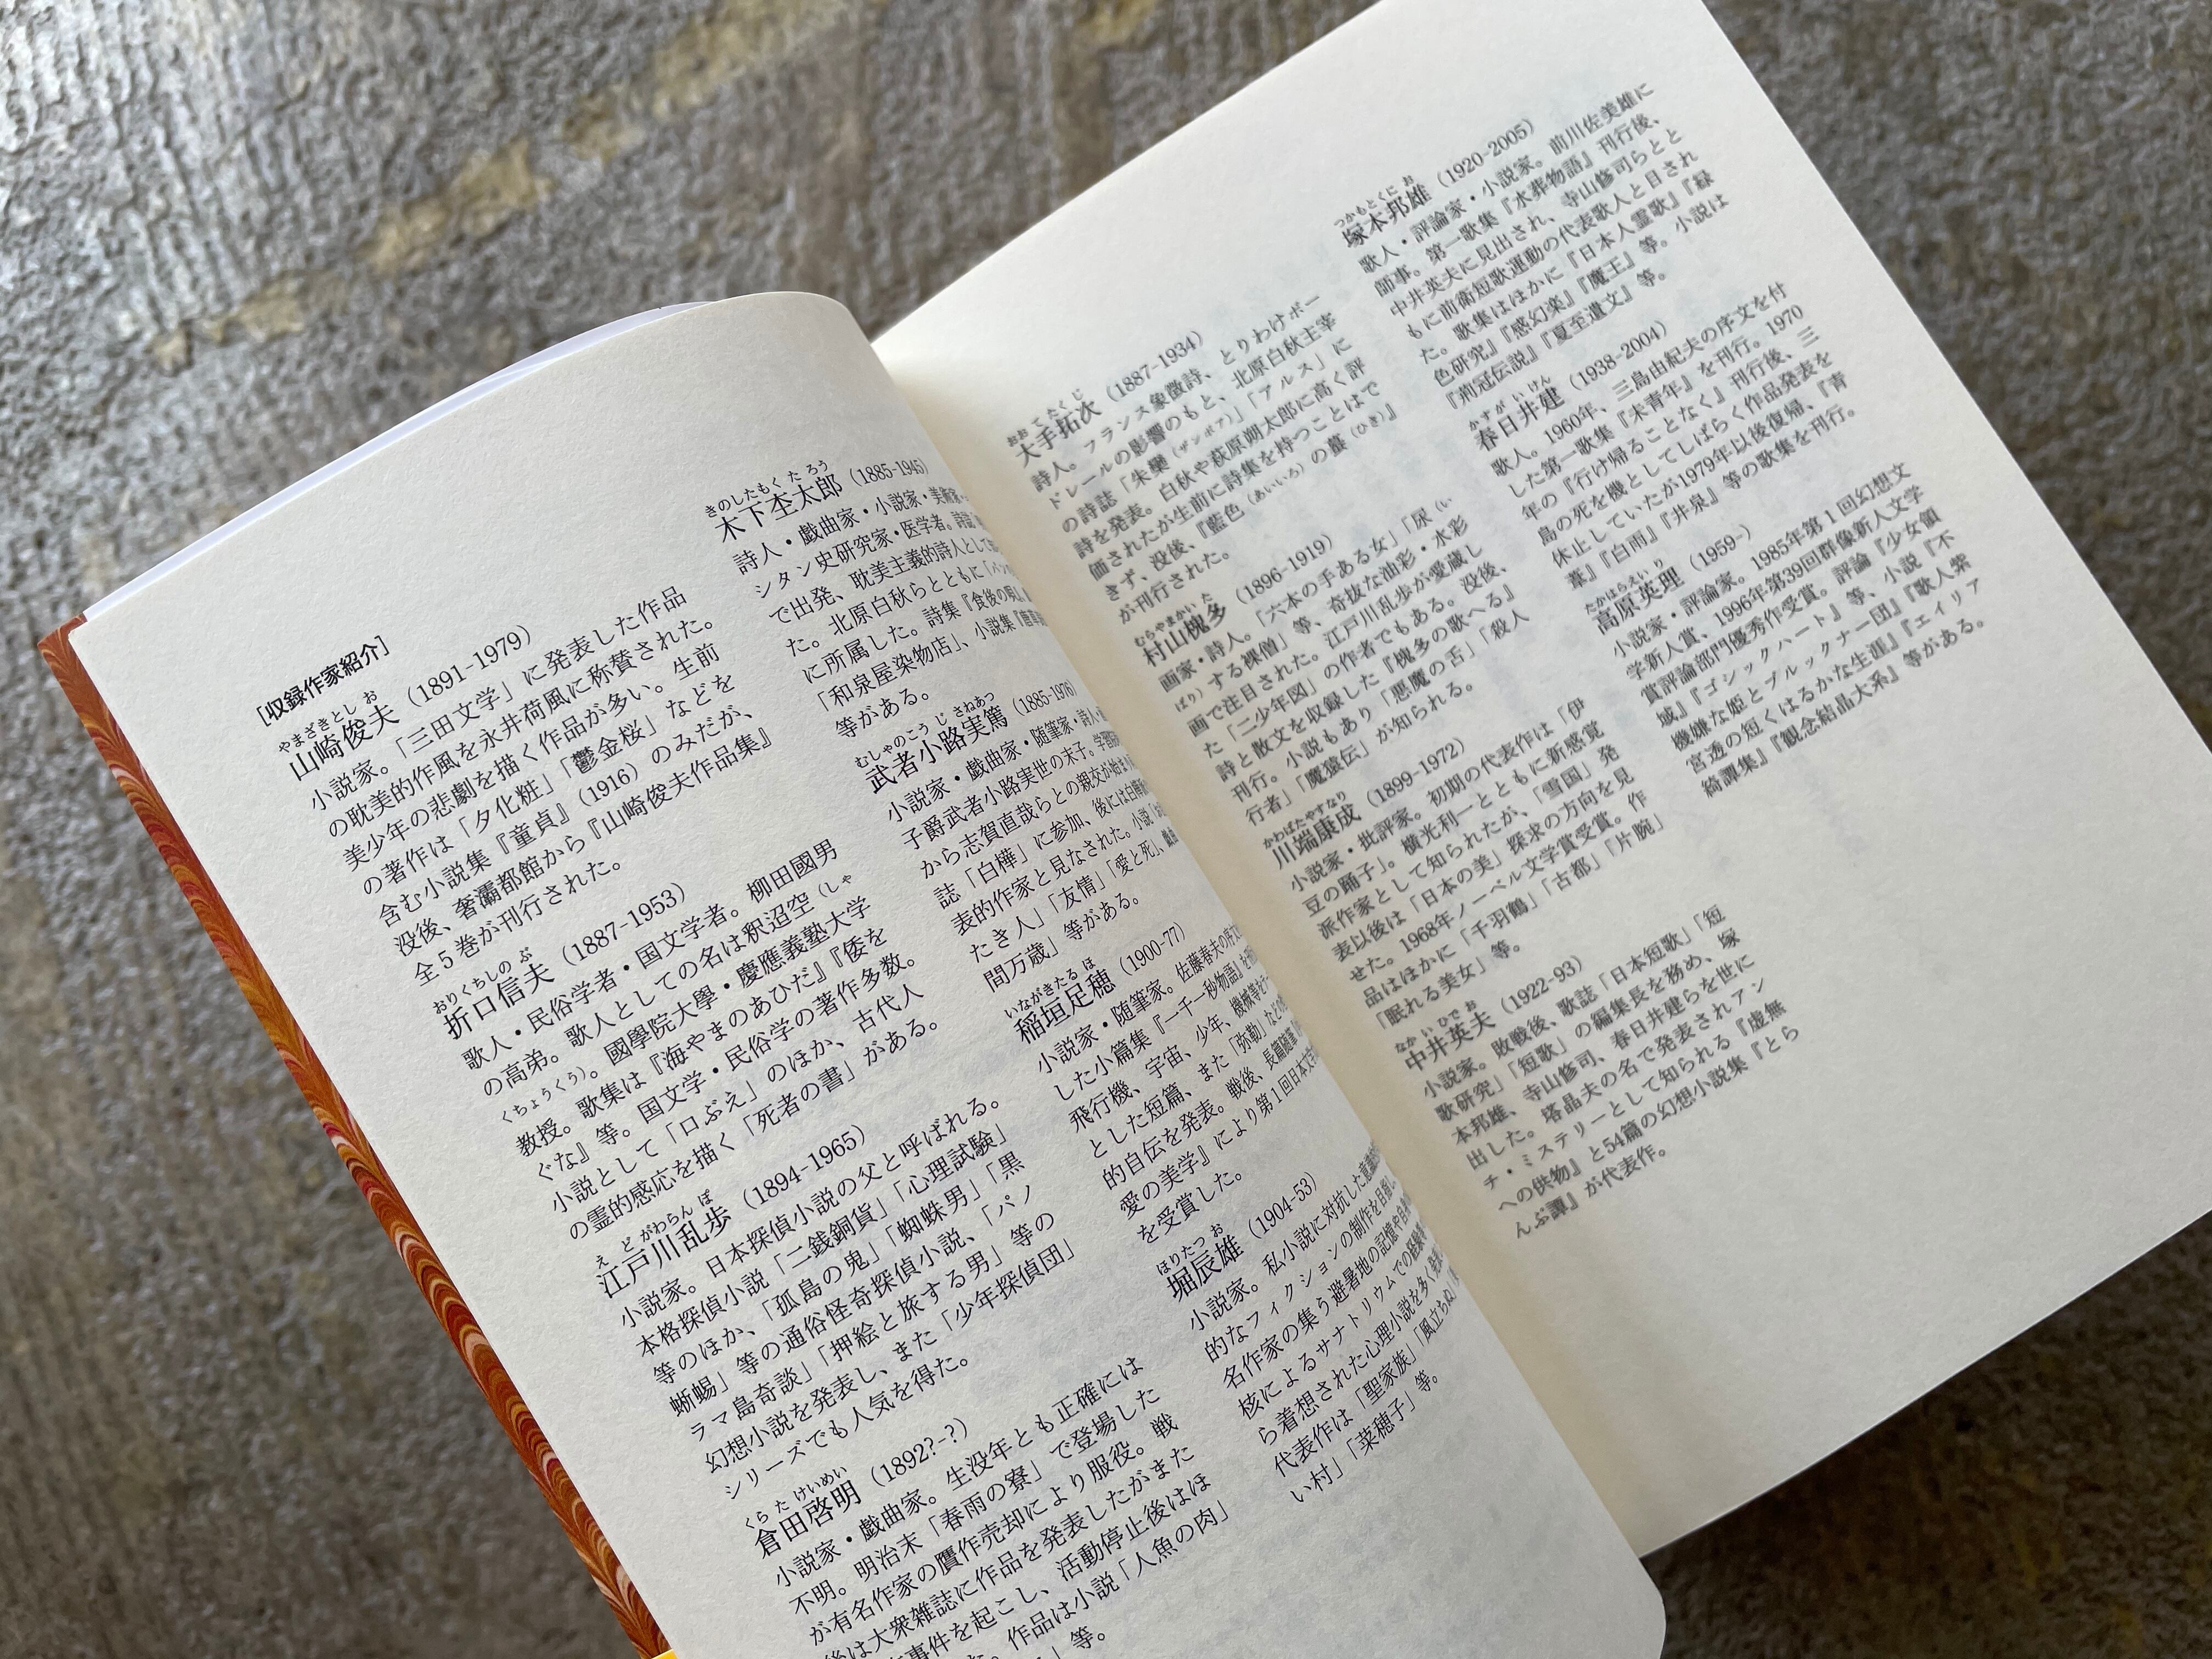 ［収録作家紹介］
やまざきとしお
山崎俊夫（1891-1979）
小説家。「三田文学」に発表した作品
の耽美的作風を永井荷風に称賛された。
美少年の悲劇を描く作品が多い。生前
の著作は「夕化粧」「鬱金桜」などを
含む小説集『童貞』（1916）のみだが、
没後、奢灞都館から『山崎俊夫作品集』
全5巻が刊行された。
おりくちしのぶ
折口信夫（1887-1953）
歌人・民俗学者・国文学者。柳田國男
の高弟。歌人としての名は釈迢空（しゃ
くちょうくう）。國學院大學・慶應義塾大学
教授。歌集は『海やまのあひだ』『倭を
ぐな』等。国文学・民俗学の著作多数。
小説として「口ぶえ」のほか、古代人
の霊的感応を描く「死者の書」がある。
えどがわらんぽ
江戸川乱歩（1894-1965）
小説家。日本探偵小説の父と呼ばれる。
本格探偵小説「二銭銅貨」「心理試験」
等のほか、「孤島の鬼」「蜘蛛男」「黒
蜥蜴」等の通俗怪奇探偵小説、「パノ
ラマ島奇談」「押絵と旅する男」等の
幻想小説を発表し、また「少年探偵団」
シリーズでも人気を得た。
くらたけいめい
倉田啓明（1892?-?）
小説家・戯曲家。生没年とも正確には
不明。明治末「春雨の寮」で登場した
が有名作家の贋作売却により服役。戦
後は大衆雑誌に作品を発表したがまた
事件を起こし、活動停止後はほ
作品は小説「人魚の肉」
」等。
きのしたもくたろう
木下杢太郎（1885-1945）
詩人・戯曲家・小説家・美術家・
シタン史研究家・医学者。詩誌
で出発、耽美主義的詩人として
た。北原白秋らとともに「パン
に所属した。詩集『食後の唄』、
「和泉屋染物店」、小説集『唐草
等がある。
むしゃのこうじさねあつ
武者小路実篤（1885-1976）
小説家・戯曲家・随筆家・詩人・
子爵武者小路実世の末子。学習院
から志賀直哉らとの親交が始まり
誌「白樺」に参加、後には白樺
表的作家と見なされた。小説「お
たき人」「友情」「愛と死」、戯曲
間万歳」等がある。
いながきたるほ
稲垣足穂（1900-77）
小説家・随筆家。佐藤春夫の序文
した小篇集『一千一秒物語』を
飛行機、宇宙、少年、機械等をテ
とした短篇、また「弥勒」などの
的自伝を発表。戦後、長篇随筆『
愛の美学』により第1回日本文学
を受賞した。
ほりたつお
堀辰雄（1904-53）
小説家。私小説に対抗した意識的
的なフィクションの制作を目指し
名作家の集う避暑地の記憶や自身
核によるサナトリウムでの経験等
ら着想された心理小説を多く発表
代表作は「聖家族」「風立ちぬ」「
い村」「菜穂子」等。
おおてたくじ
大手拓次（1887-1934）
詩人。フランス象徴詩、とりわけボー
ドレールの影響のもと、北原白秋主宰
の詩誌「朱欒（ザンボア）」「アルス」に
詩を発表。白秋や萩原朔太郎に高く評
価されたが生前に詩集を持つことはで
きず、没後、『藍色（あいいろ）の蟇（ひき）』
が刊行された。
むらやまかいた
村山槐多（1896-1919）
画家・詩人。「六本の手ある女」「尿（い
ばり）する裸僧」等、奇抜な油彩・水彩
画で注目された。江戸川乱歩が愛蔵し
た「二少年図」の作者でもある。没後、
詩と散文を収録した『槐多の歌へる』
刊行。小説もあり「悪魔の舌」「殺人
行者」「魔猿伝」が知られる。
かわばたやすなり
川端康成（1899-1972）
小説家・批評家。初期の代表作は「伊
豆の踊子」。横光利一とともに新感覚
派作家として知られたが、「雪国」発
表以後は「日本の美」探求の方向を見
せた。1968年ノーベル文学賞受賞。作
品はほかに「千羽鶴」「古都」「片腕」
「眠れる美女」等。
なかいひでお
中井英夫（1922-93）
小説家。敗戦後、歌誌「日本短歌」「短
歌研究」「短歌」の編集長を務め、塚
本邦雄、寺山修司、春日井建らを世に
出した。塔晶夫の名で発表されアン
チ・ミステリーとして知られる『虚無
への供物』と54篇の幻想小説集『とら
んぷ譚』が代表作。
つかもとくにお
塚本邦雄（1920-2005）
歌人・評論家・小説家。前川佐美雄に
師事。第一歌集『水葬物語』刊行後、
中井英夫に見出され、寺山修司らとと
もに前衛短歌運動の代表歌人と目され
た。歌集はほかに『日本人霊歌』『緑
色研究』『感幻楽』『魔王』等。小説は
『荊冠伝説』『夏至遺文』等。
かすがいけん
春日井建（1938-2004）
歌人。1960年、三島由紀夫の序文を付
した第一歌集『未青年』を刊行。1970
年の『行け帰ることなく』刊行後、三
島の死を機としてしばらく作品発表を
休止していたが1979年以後復帰、『青
葦』『白雨』『井泉』等の歌集を刊行。
たかはらえいり
高原英理（1959-）
小説家・評論家。1985年第1回幻想文
学新人賞、1996年第39回群像新人文学
賞評論部門優秀作受賞。評論『少女領
域』『ゴシックハート』等、小説『不
機嫌な姫とブルックナー団』『歌人紫
宮透の短くはるかな生涯』『エイリア
綺譚集』『観念結晶大系』等がある。